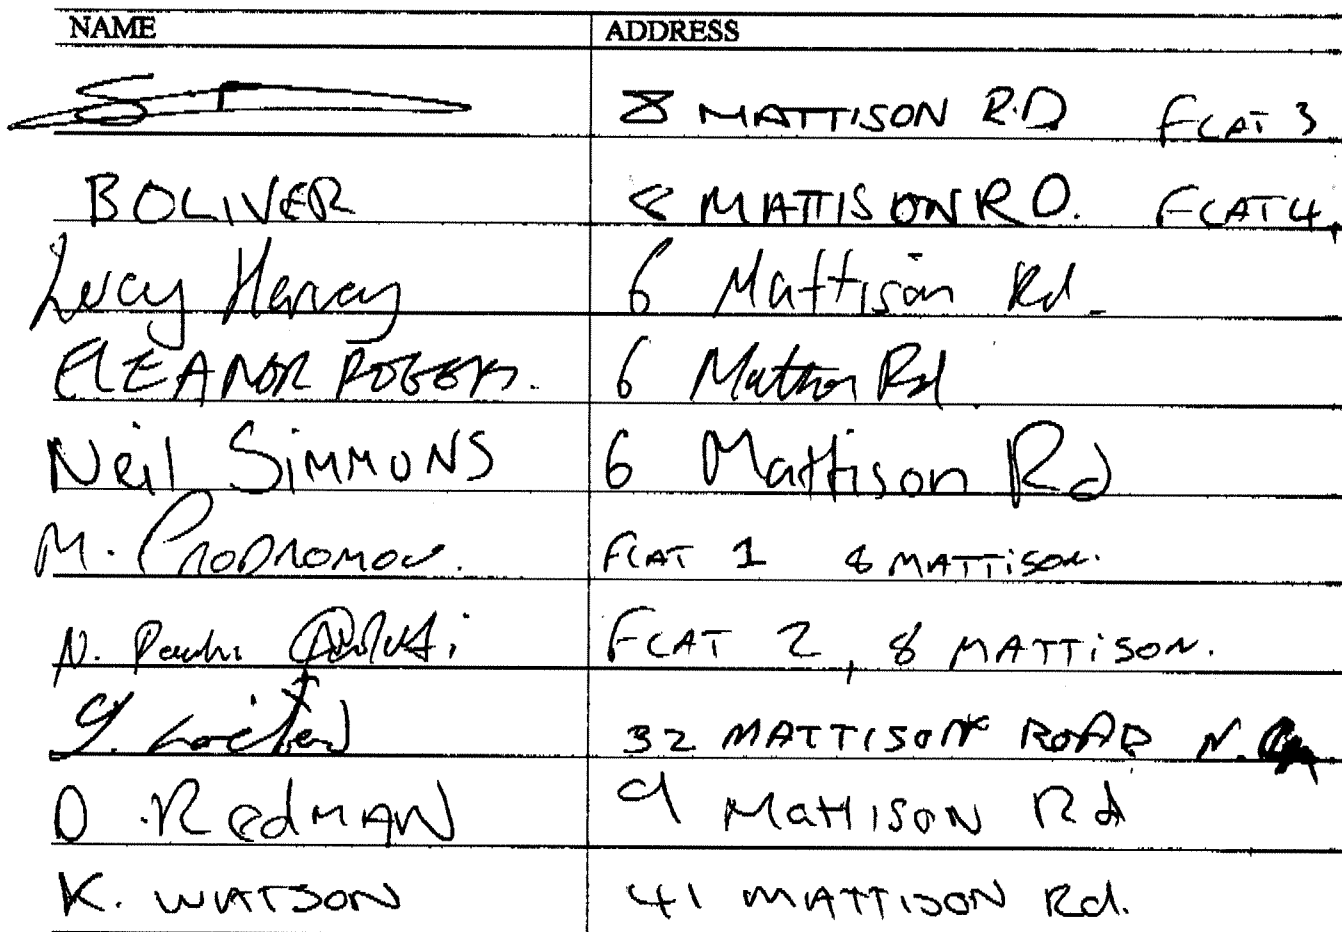 NAME ADDRESS
8 MATTISON R.D FLAT 3
BOLIVER 8 MATTISON RD. FLAT 4
Lucy Harvey 6 Mattison Rd.
ELEANOR ROGERS. 6 Mattison Rd
Neil SIMMONS 6 Mattison Rd
M. PRODROMOU. FLAT 1 8 MATTISON.
N. FLAT 2, 8 MATTISON.
32 MATTISON ROAD N.
D. RedMAN 9 MattISON Rd
K. WATSON 41 MATTISON Rd.